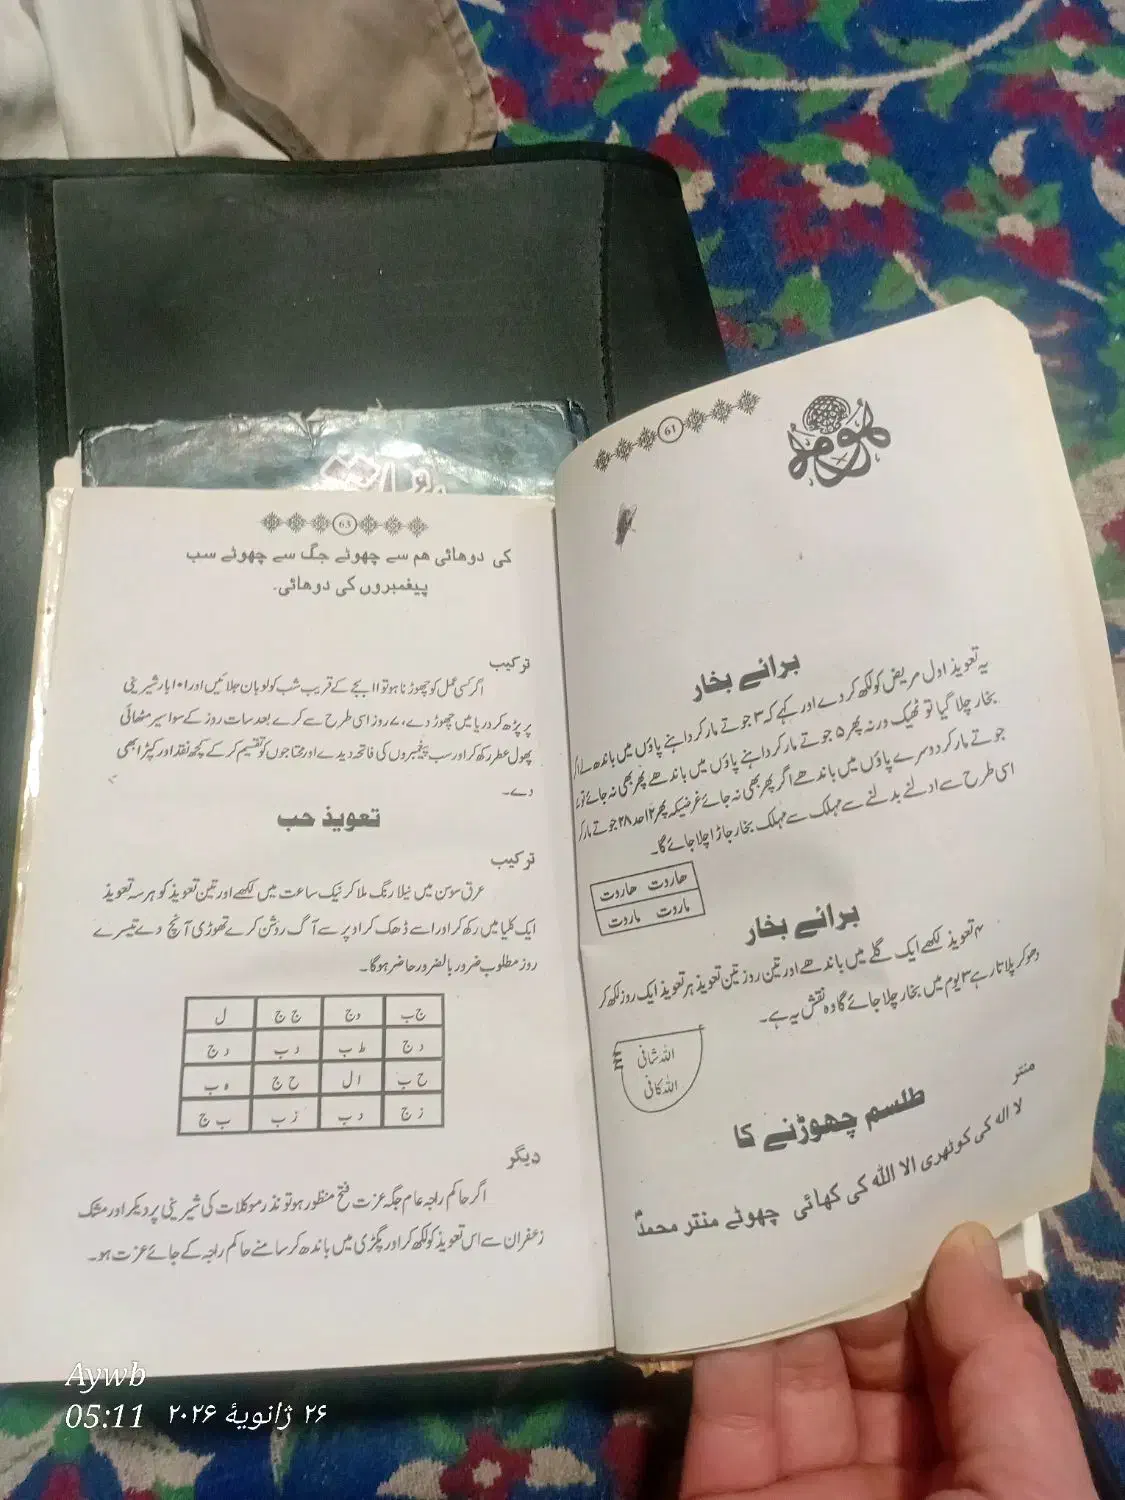 61
برائے بخار
یہ تعویذ اول مریض کو لکھ کر دے اور کہے کہ ۳ جوتے مار کر داہنے پاؤں میں باندھے اگر
بخار چلا گیا تو ٹھیک ورنہ پھر ۵ جوتے مار کر داہنے پاؤں میں باندھے پھر بھی نہ جائے تو ۷
جوتے مار کر دوسرے پاؤں میں باندھے اگر پھر بھی نہ جائے غرضیکہ پھر ۱۲ حد ۲۸ جوتے مار کر
اسی طرح سے ادلنے بدلنے سے مہلک سے مہلک بخار جاڑا چلا جائے گا۔
ھاروت ھاروت
ماروت ماروت
برائے بخار
۴ تعویذ لکھے ایک گلے میں باندھے اور تین روز تین تعویذ ہر تعویذ ایک روز لکھ کر
دھو کر پلاتا رہے ۳ یوم میں بخار چلا جائے گا وہ نقش یہ ہے۔
اللہ شافی
اللہ کافی
طلسم چھوڑنے کا
منتر
لا الہ کی کوٹھری الا اللہ کی کھائی چھوٹے منتر محمدؐ
63
کی دوھائی ھم سے چھوٹے جگ سے چھوٹے سب
پیغمبروں کی دوھائی۔
ترکیب
اگر کسی عمل کو چھوڑنا ہو تو ۱۱ بجے کے قریب شب کو لوبان جلائیں اور ۱۰۱ بار شیرینی
پر پڑھ کر دریا میں چھوڑ دے، ۷ روز اسی طرح سے کرے بعد سات روز کے سوا سیر مٹھائی
پھول عطر رکھ کر اور سب پیغمبروں کی فاتحہ دیدے اور محتاجوں کو تقسیم کر کے کچھ نقد اور کپڑا بھی
دے۔
تعویذ حب
ترکیب
عرق سوسن میں نیلا رنگ ملا کر نیک ساعت میں لکھے اور تین تعویذ کو ہر سہ تعویذ
ایک کلیا میں رکھ کر اور اسے ڈھک کر اوپر سے آگ روشن کرے تھوڑی آنچ دے تیسرے
روز مطلوب ضرور بالضرور حاضر ہوگا۔
ج ب دج ج ج ل
د ج ط ب د ب د ج
ح ب ا ل ح ج ہ ب
ز ج د ب ز ب ب ج
دیگر
اگر حاکم راجہ عام جگہ عزت فتح منظور ہو تو نذر موکلات کی شیرینی پر دیکر اور مشک
زعفران سے اس تعویذ کو لکھ کر اور پگڑی میں باندھ کر سامنے حاکم راجہ کے جائے عزت ہو۔
Aywb
05:11 ۲۶ ژانویهٔ ۲۰۲۶